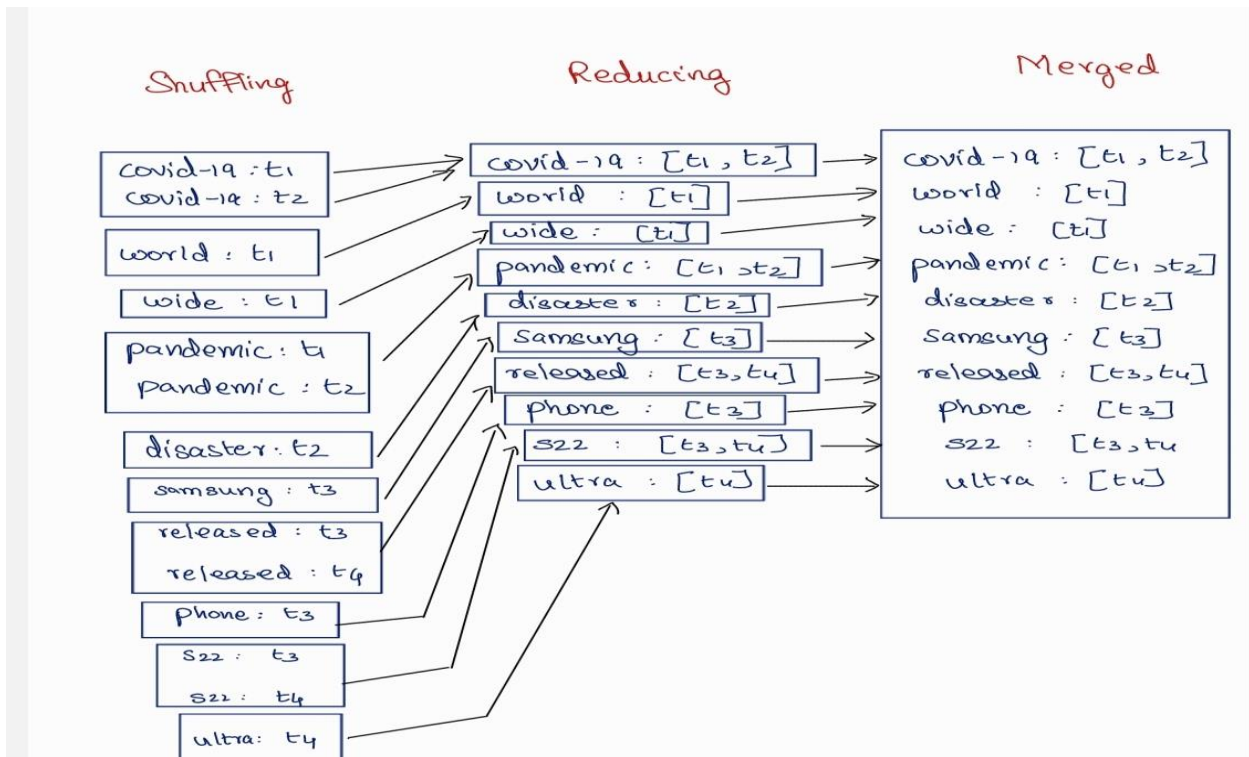 Shuffling
covid-19 : t1
covid-19 : t2
world : t1
wide : t1
pandemic : t1
pandemic : t2
disaster : t2
samsung : t3
released : t3
released : t4
phone : t3
S22 : t3
S22 : t4
ultra : t4
Reducing
covid-19 : [t1, t2]
world : [t1]
wide : [t1]
pandemic : [t1, t2]
disaster : [t2]
samsung : [t3]
released : [t3, t4]
phone : [t3]
S22 : [t3, t4]
ultra : [t4]
Merged
covid-19 : [t1, t2]
world : [t1]
wide : [t1]
pandemic : [t1, t2]
disaster : [t2]
samsung : [t3]
released : [t3, t4]
phone : [t3]
S22 : [t3, t4
ultra : [t4]